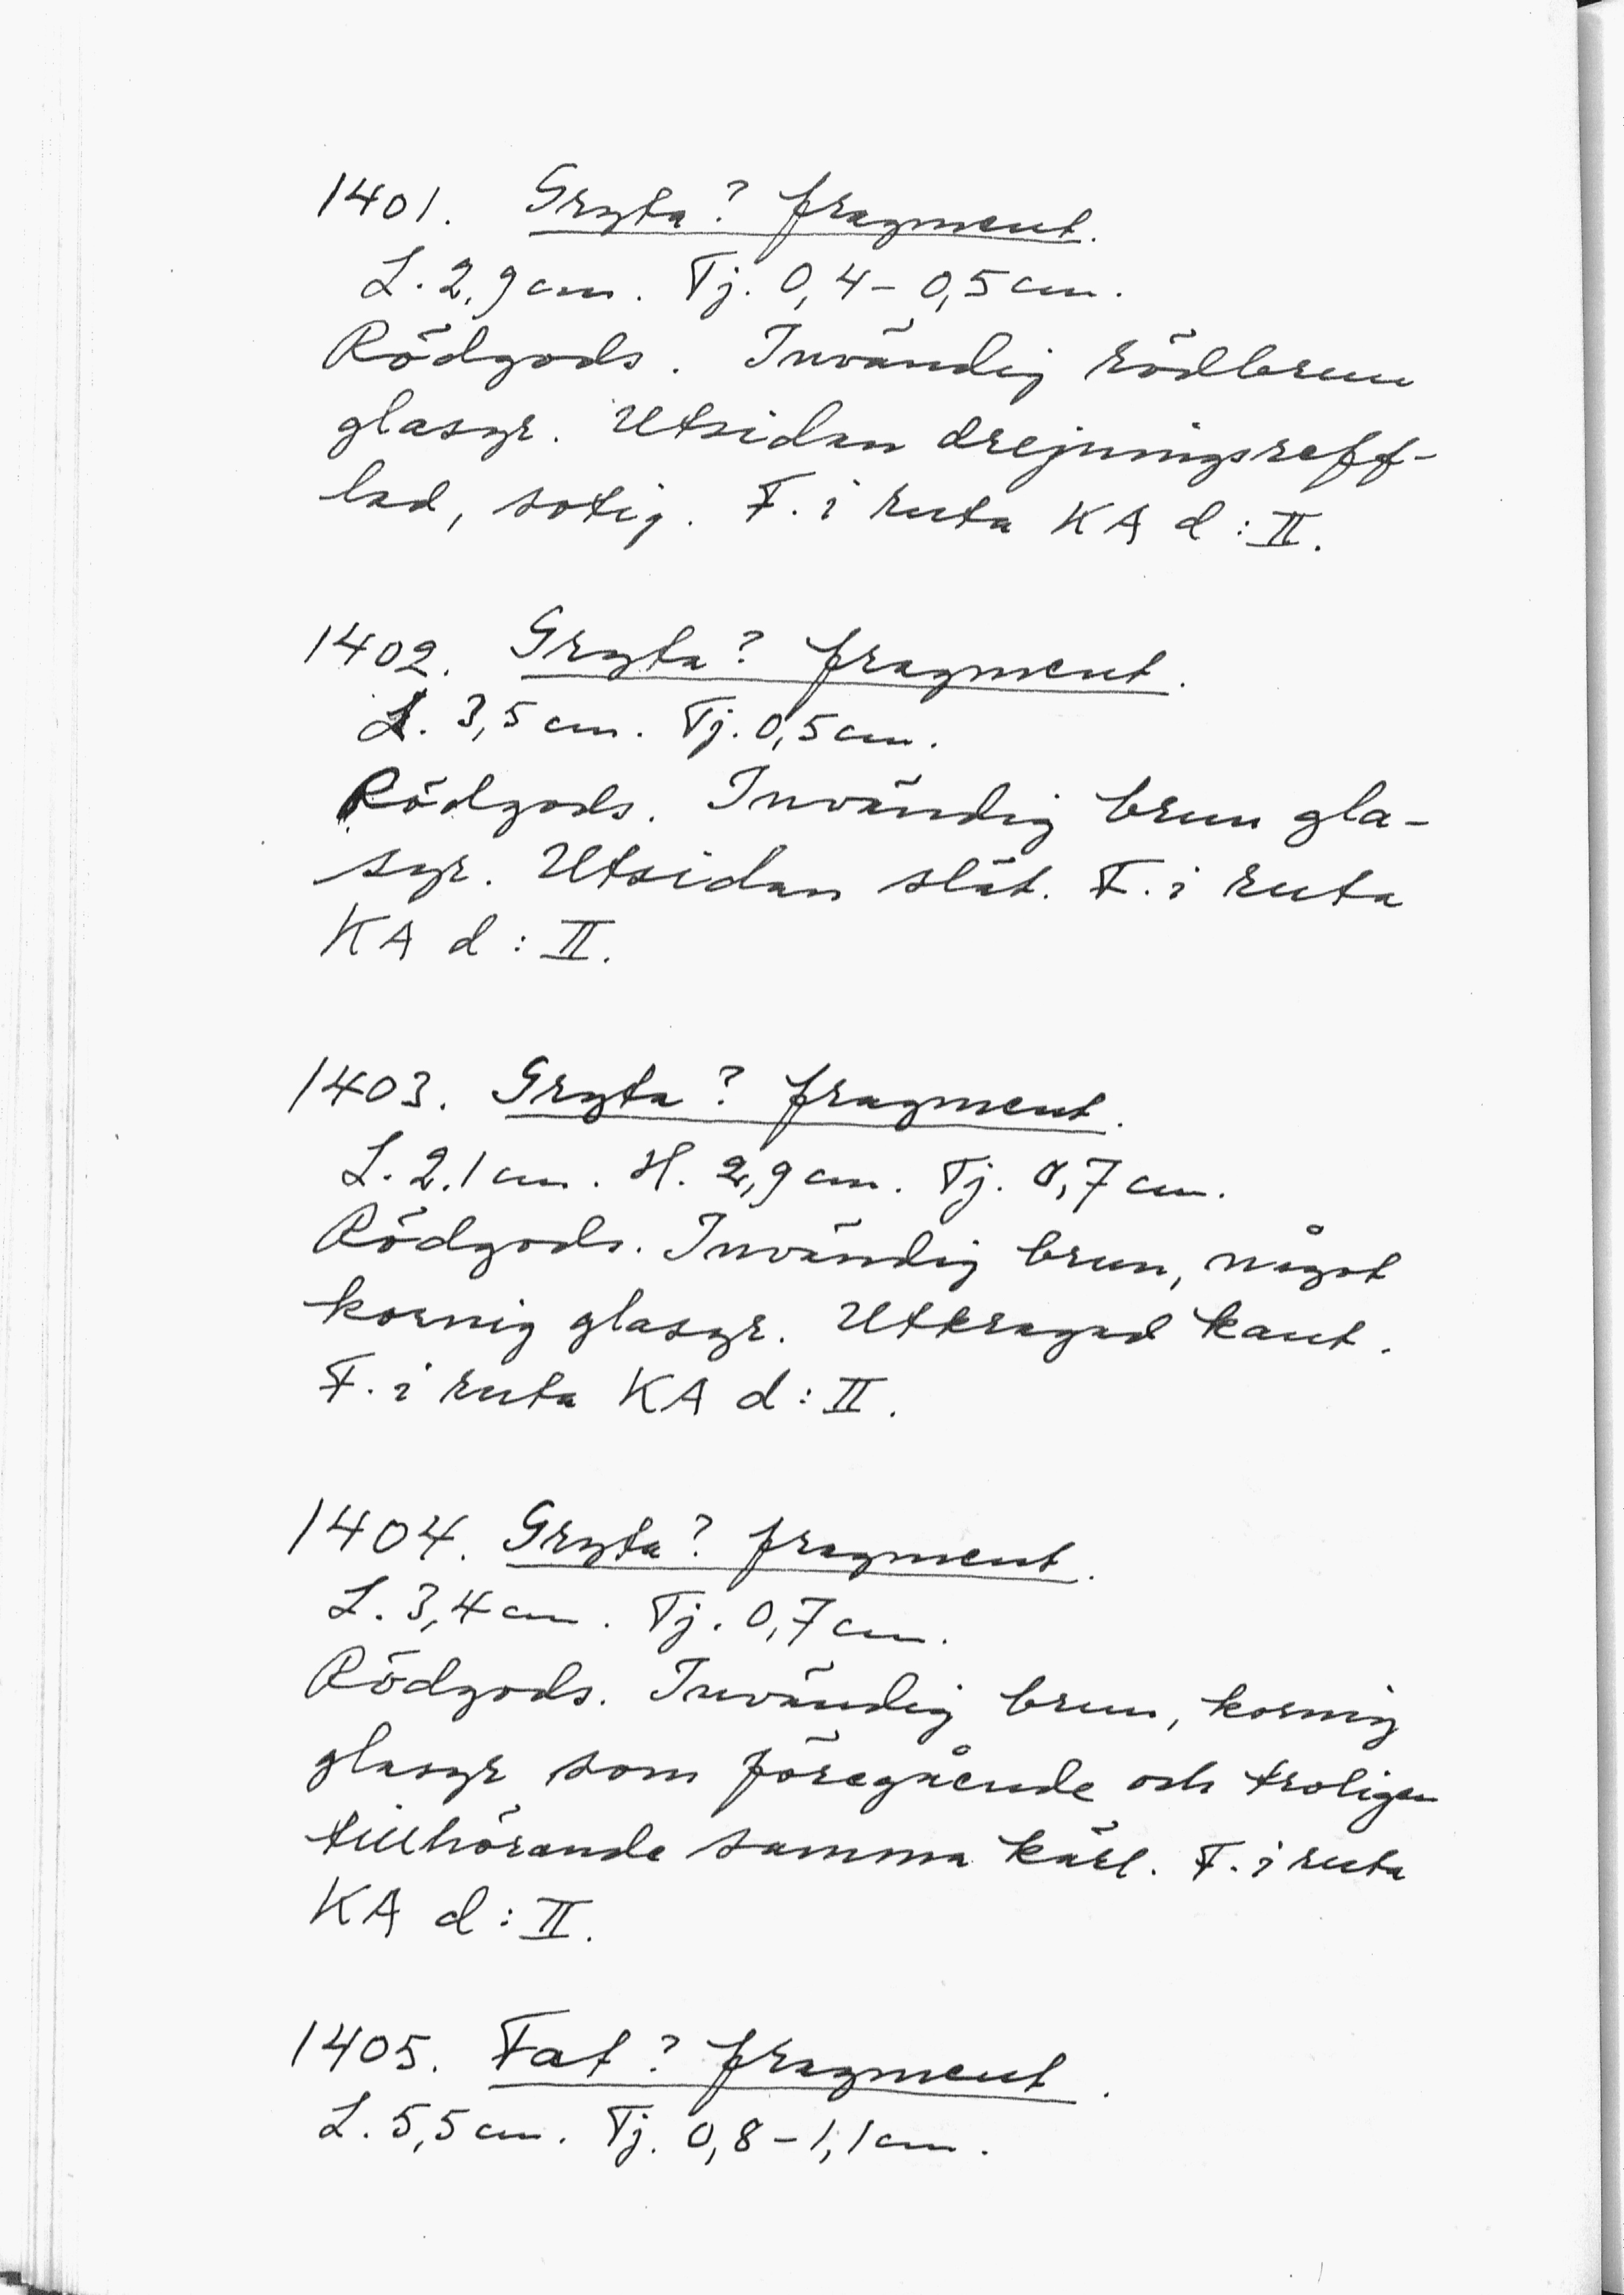 1401. Gryta? fragment.
L. 2,9 cm. Tj. 0,4-0,5 cm.
Rödgods. Invändig rödbrun
glasyr. Utsidan drejningsreff-
lad, sotig. F. i ruta KA d:II.
1402. Gryta? fragment.
L. 3,5 cm. Tj. 0,5 cm.
Rödgods. Invändig brun gla-
syr. Utsidan slät. F. i ruta
KA d:II.
1403. Gryta? fragment.
L. 2,1 cm. H. 2,9 cm. Tj. 0,7 cm.
Rödgods. Invändig brun, något
kornig glasyr. Utkragad kant.
F. i ruta KA d:II.
1404. Gryta? fragment.
L. 3,4 cm. Tj. 0,7 cm.
Rödgods. Invändig brun, kornig
glasyr som föregående och troligen
tillhörande samma kärl. F. i ruta
KA d:II.
1405. Fat? fragment.
L. 5,5 cm. Tj. 0,8-1,1 cm.